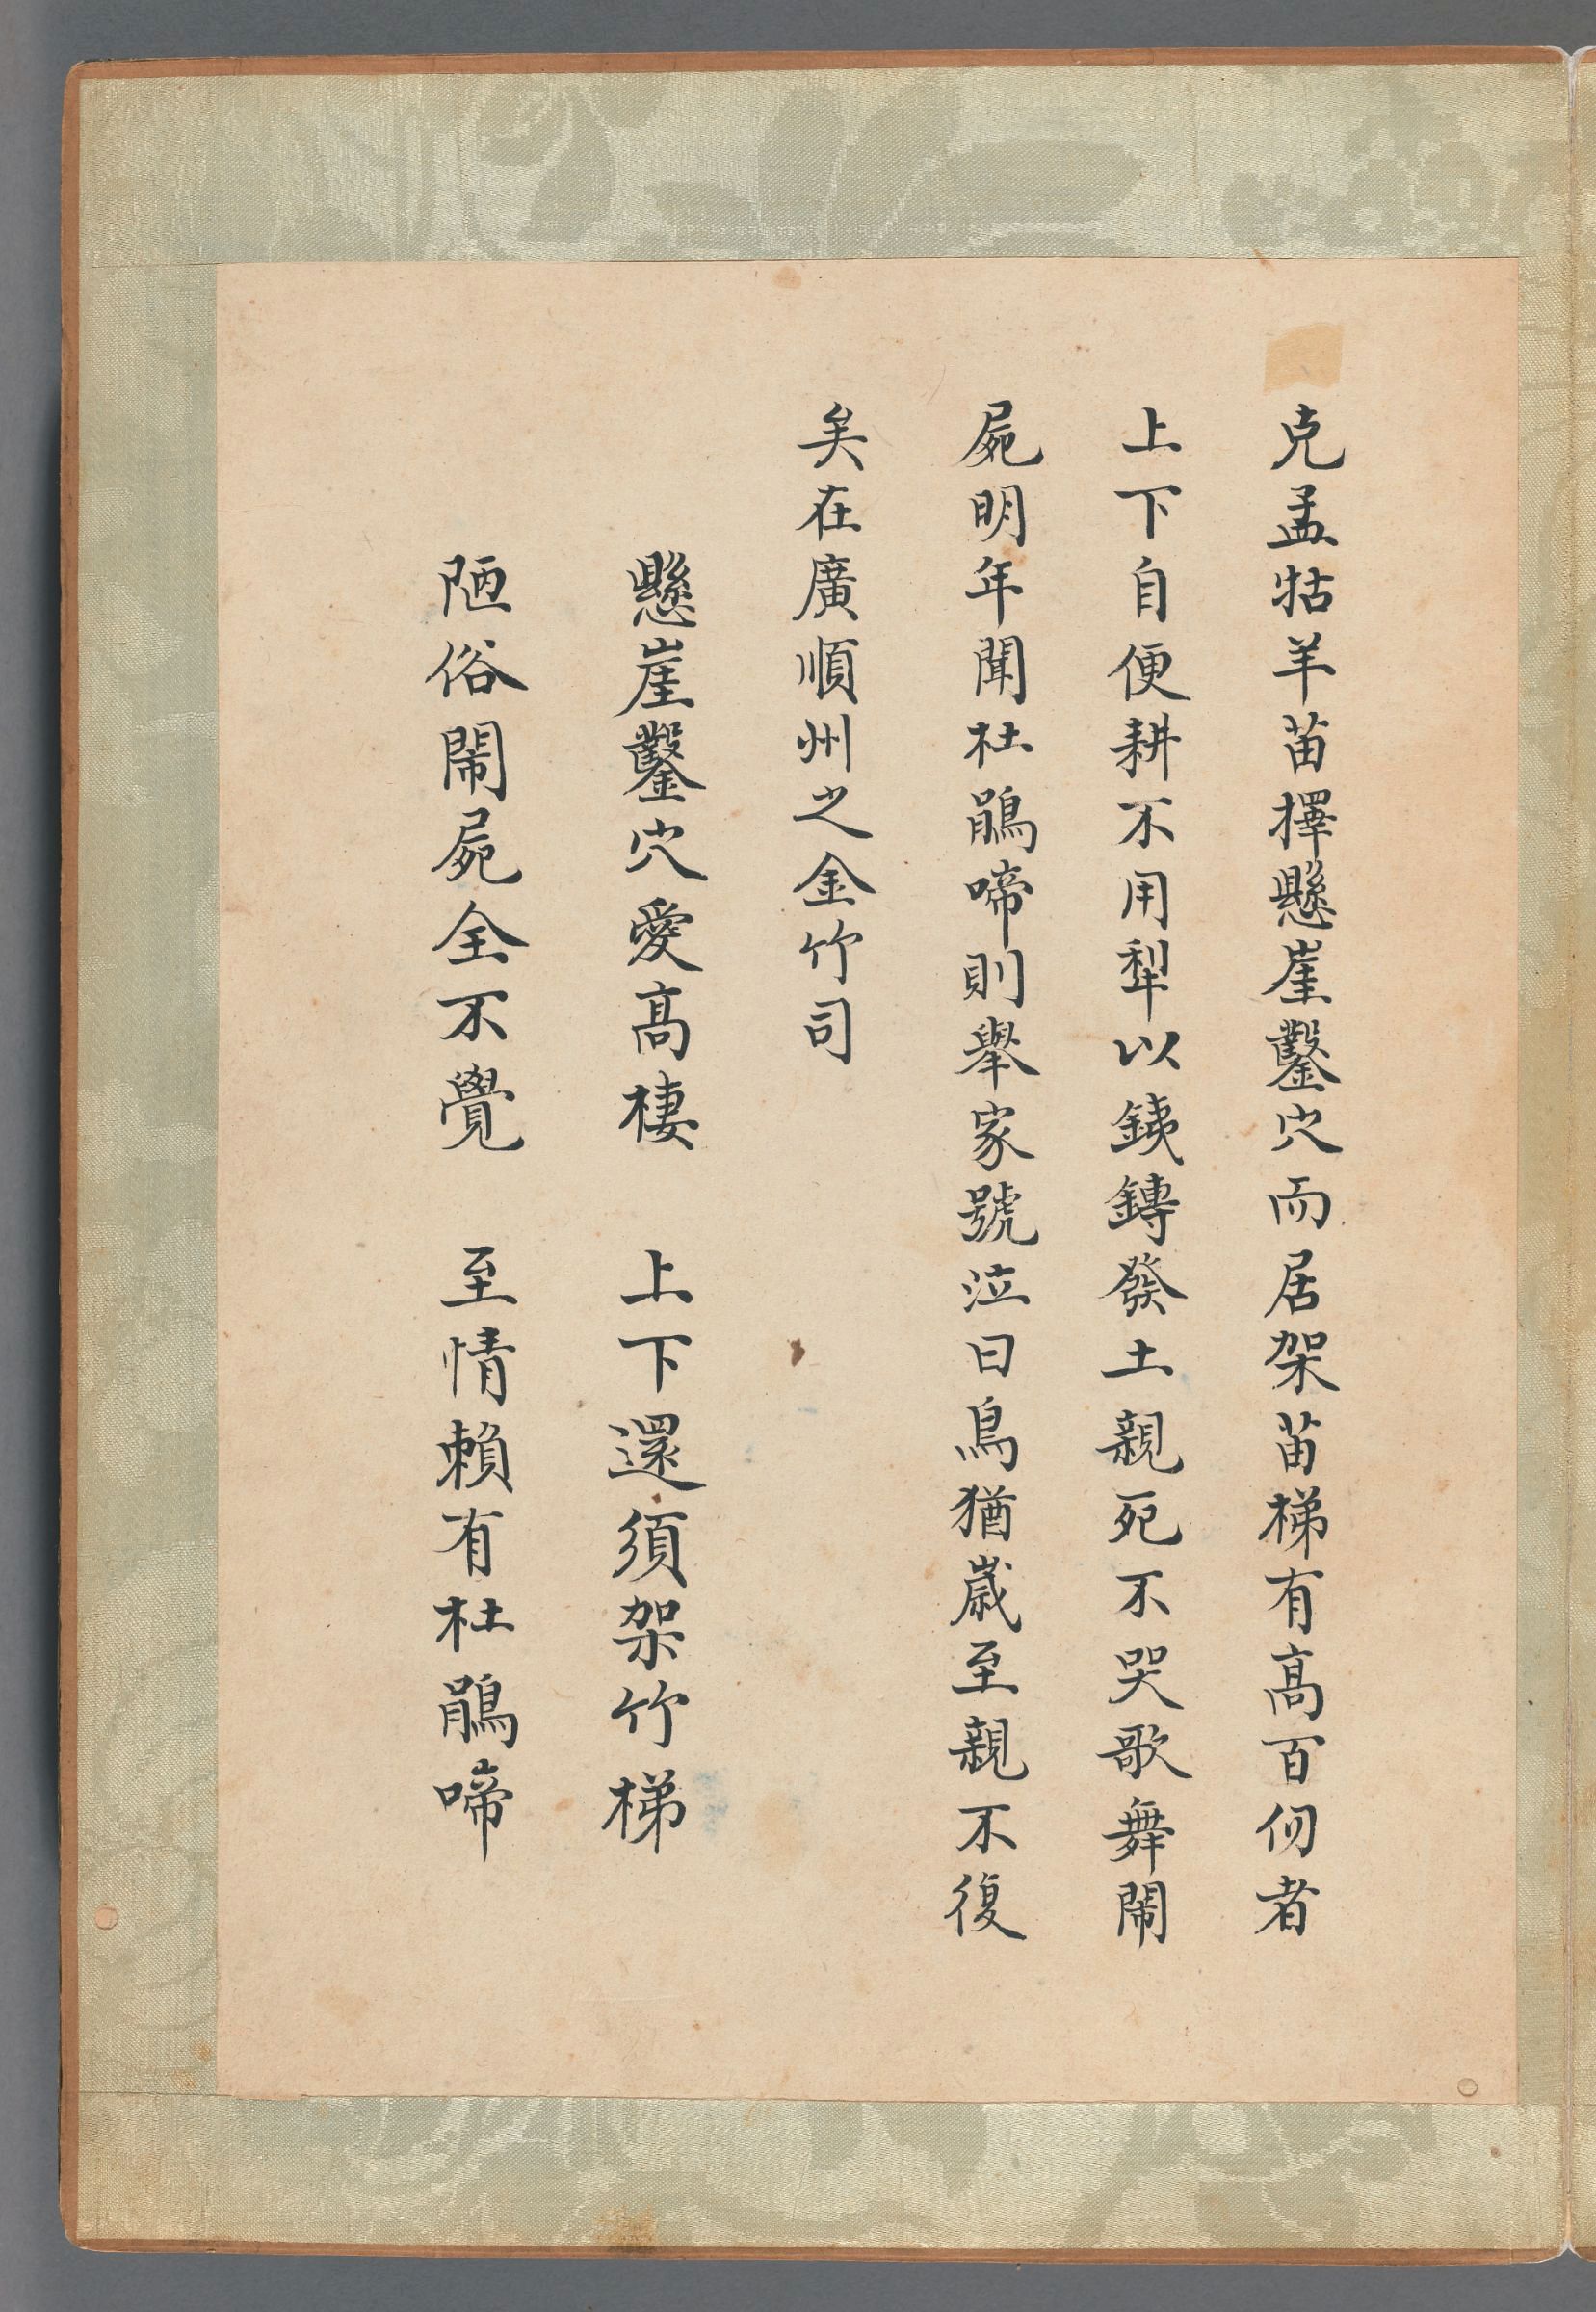 克孟牯羊苗擇懸崖鑿穴而居架苗梯有高百仞者
上下自便耕不用犁以銕鎛發土親死不哭歌舞鬧
屍明年聞杜鵑啼則舉家號泣曰鳥猶歲至親不復
矣在廣順州之金竹司
懸崖鑿穴愛高棲 上下還須架竹梯
陋俗鬧屍全不覺 至情賴有杜鵑啼